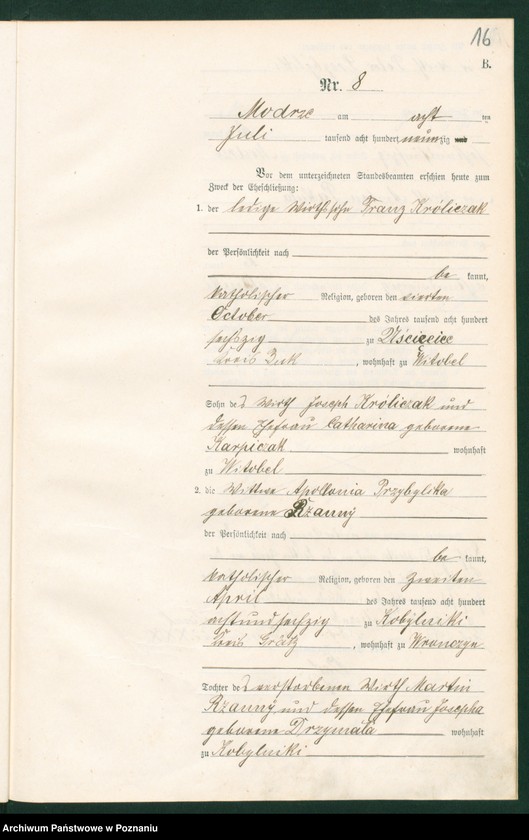 16
B.
Nr. 8
Modrze am acht ten
Juli tausend acht hundert neunzig
Vor dem unterzeichneten Standesbeamten erschien heute zum
Zweck der Eheschließung:
1. der ledige Wirthssohn Franz Króliczak
der Persönlichkeit nach
be kannt,
katholischer Religion, geboren den vierten
October des Jahres tausend acht hundert
sechszig zu Uścięcice
Kreis Buk, wohnhaft zu Witobel
Sohn des Wirth Joseph Króliczak und
dessen Ehefrau Catharina geborene
Karpiczak wohnhaft
zu Witobel
2. die Wittwe Apollonia Przybylska
geborene Rzanny
der Persönlichkeit nach
be kannt,
katholischer Religion, geboren den zweiten
April des Jahres tausend acht hundert
achtundsechzig zu Kobylniki
Kreis Grätz, wohnhaft zu Wronczyn
Tochter des verstorbenen Wirth Martin
Rzanny und dessen Ehefrau Josepha
geborene Drzymała wohnhaft
zu Kobylniki
Archiwum Państwowe w Poznaniu